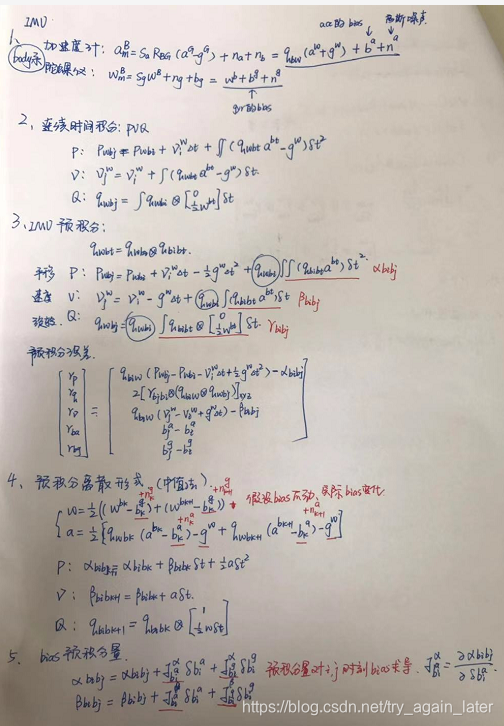 IMU
1、
body系
acc的bias 高斯噪声
加速度计: a_m^B = S_a R_BG (a^G - g^G) + n_a + n_b = q_bw (a^w + g^w) + b^a + n^a
陀螺仪: w_m^B = S_g w^B + n_g + b_g = w^b + b^g + n^g
gyr的bias
2、连续时间积分: PVQ
P: P_wbj = P_wbi + V_i^w Δt + ∬ (q_wbt a^bt - g^w) δt²
V: V_j^w = V_i^w + ∫ (q_wbt a^bt - g^w) δt
Q: q_wbj = ∫ q_wbt ⊗ [0 ½w^bt] δt
3、IMU 预积分:
q_wbt = q_wbi ⊗ q_bibt
平移 P: P_wbj = P_wbi + V_i^w Δt - ½ g^w Δt² + q_wbi ∬ (q_bibt a^bt) δt² α_bibj
速度 V: V_j^w = V_i^w - g^w Δt + q_wbi ∫ (q_bibt a^bt) δt β_bibj
Q: q_wbj = q_wbi ∫ q_bibt ⊗ [0 ½w^bt] δt. γ_bibj
预积分误差.
r_p q_biw (P_wbj - P_wbi - V_i^w Δt + ½ g^w Δt²) - α_bibj
r_q 2[γ_bjbi ⊗ (q_biw ⊗ q_wbj)]_xyz
r_v = q_biw (V_j^w - V_i^w + g^w Δt) - β_bibj
r_ba b_j^a - b_i^a
r_bg b_j^g - b_i^g
4、预积分离散形式 (中值法).
+n_k^g +n_k+1^g
w = ½((w^bk - b_k^g) + (w^bk+1 - b_k^g)) 假设bias不动, 实际bias变化
+n_k^a +n_k+1^a
a = ½[q_wbk (a^bk - b_k^a) - g^w + q_wbk+1 (a^bk+1 - b_k^a) - g^w]
P: α_bibk+1 = α_bibk + β_bibk δt + ½ a δt²
V: β_bibk+1 = β_bibk + a δt.
Q: q_bibk+1 = q_bibk ⊗ [1 ½wδt]
5、bias 预积分量.
α_bibj = α_bibj + J_bi^α δb_i^a + J_bi^α δb_i^g 预积分量对i,j时刻bias求导. J_bi^α = ∂α_bibj / ∂δb_i^a
β_bibj = β_bibj + J_bi^β δb_i^a + J_bi^β δb_i^g
https://blog.csdn.net/try_again_later